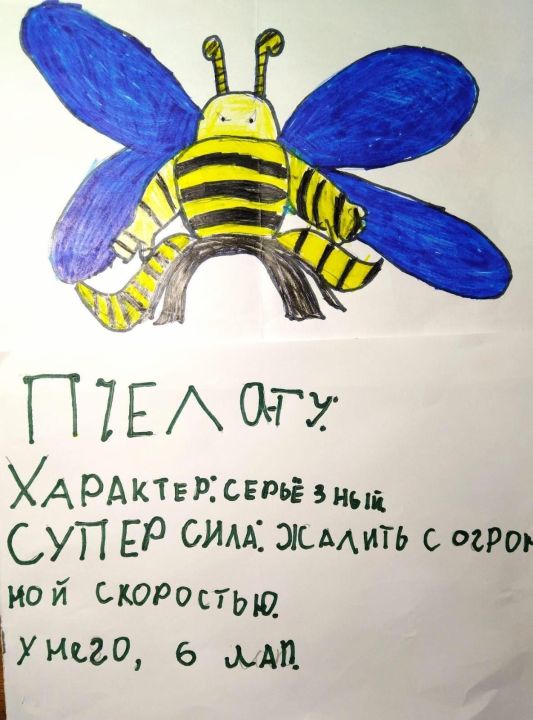 ПЧЕЛ О-ГУ:
ХАРАКТЕР: СЕРЬЁЗНЫЙ
СУПЕР СИЛА: ЖАЛИТЬ С ОГРОМ
НОЙ СКОРОСТЬЮ.
У НЕГО, 6 ЛАП.